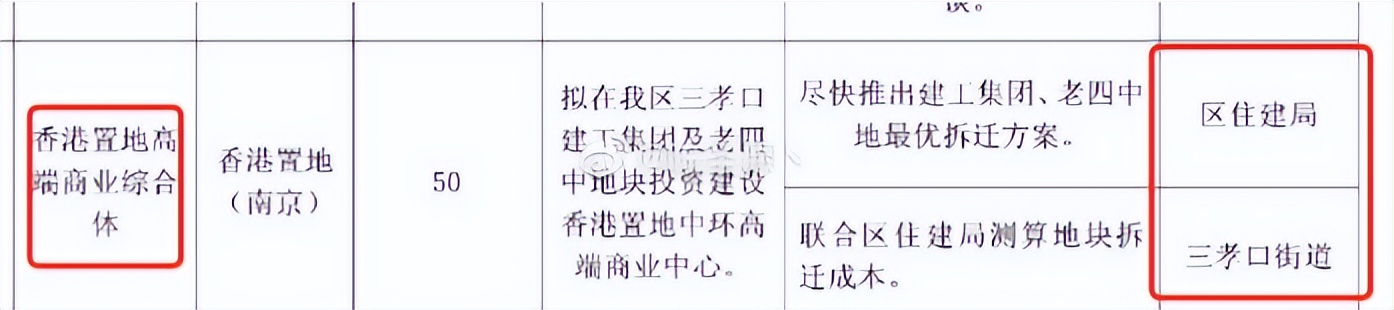 香港置地高
端商业综合
体
香港置地
（南京）
50
拟在我区三孝口
建工集团及老四
中地块投资建设
香港置地中环高
端商业中心。
尽快推出建工集团、老四中
地最优拆迁方案。
区住建局
联合区住建局测算地块拆
迁成本。
三孝口街道